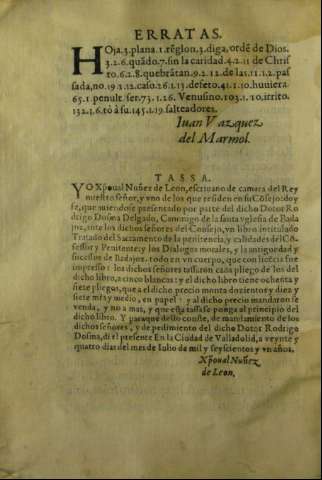 ERRATAS.
HOja.3.plana.1.rẽglon.3.diga, ordẽ de Dios.
3.2.6.quãdo.7.sin la caridad.4.2.11.de Chris
to.6.2.8.quebrãtan.9.2.12.de las.11.1.2.pas
sada, no.19.1.12.caso.26.1.13.defeto.41.1.10.huuiera
65.1.penult.ser.73.1.26.Venusino.103.1.10.irrito.
132.1.6.to à su.145.1.19.salteadores.
Iuan Vazquez
del Marmol.
TASSA.
YO Xp̃oual Nuñez de Leon, escriuano de camara del Rey
nuestro señor, y vno de los que residen en su Cõsejo: doy
fe, que auiendose presentado por parte del dicho Dotor Ro
drigo Dosma Delgado, Canonigo de la santa yglesia de Bada
joz, ante los dichos señores del Consejo, vn libro intitulado
Tratado del Sacramento de la penitencia, y calidades del Cõ-
fessor y Penitente; y los Dialogos morales, y la antiguedad y
sucessos de Badajoz. todo en vn cuerpo, que con licẽcia fue
impresso: los dichos señores tassaron cada pliego de los del
dicho libro, a cinco blancas: y el dicho libro tiene ochenta y
siete pliegos, que a el dicho precio monta dozientos y diez y
siete mrs y medio, en papel: y al dicho precio mandaron se
venda, y no a mas, y que esta tassa se ponga al principio del
dicho libro. Y para que dello conste, de mandamiento de los
dichos señores, y de pedimiento del dicho Dotor Rodrigo
Dosma, di el presente En la Ciudad de Valladolid, a veynte y
quatro dias del mes de Iulio de mil y seyscientos y vn años.
Xp̃oual Nuñez
de Leon.